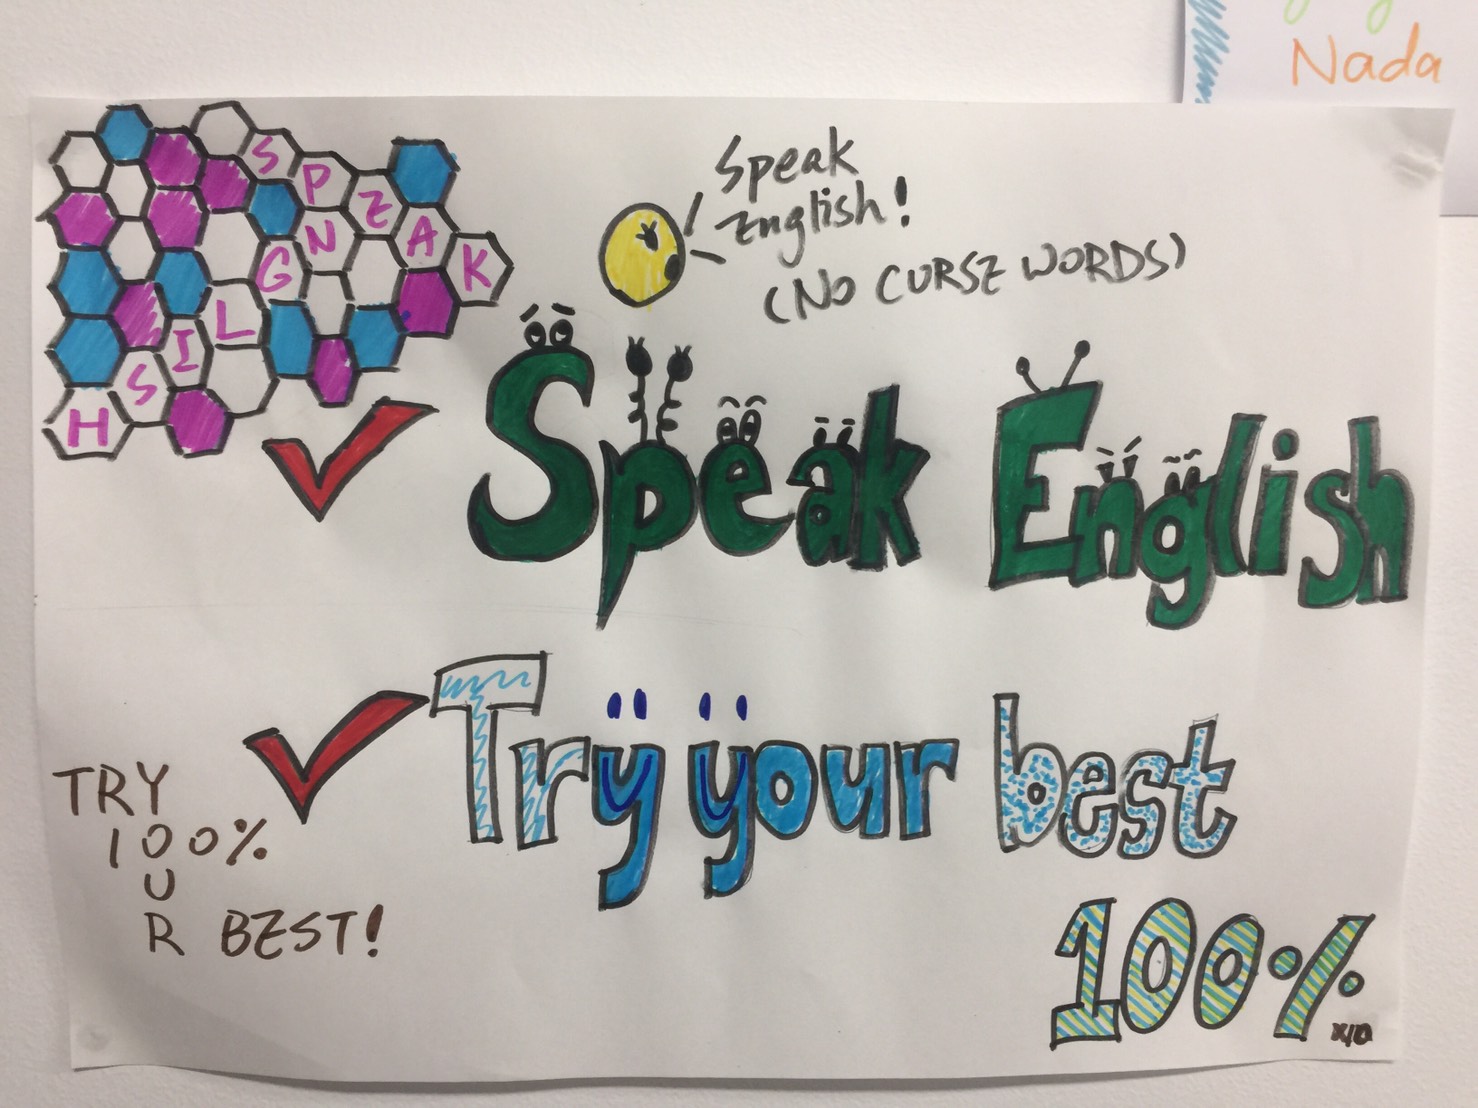 Nada
SPEAK
NGLISH
Speak
English!
(NO CURSE WORDS)
Speak English
Try your best
TRY
100%
U
R BEST!
100%